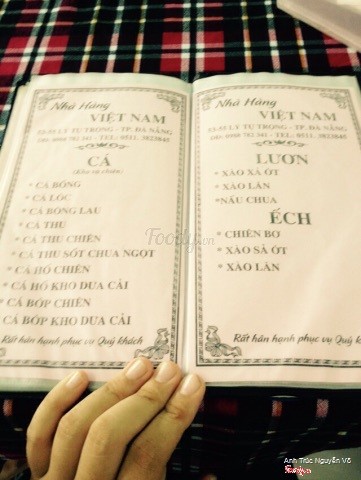 Nhà Hàng
VIỆT NAM
53-55 LÝ TỰ TRỌNG - TP. ĐÀ NẴNG
CÁ
(Kho và chiên)
* CÁ BỐNG
* CÁ LÓC
* CÁ BÔNG LAU
* CÁ THU
* CÁ THU CHIÊN
* CÁ THU SỐT CHUA NGỌT
* CÁ HỐ CHIÊN
* CÁ HỐ KHO DƯA CẢI
* CÁ BỚP CHIÊN
CÁ BỚP KHO DƯA CẢI
Rất hân hạnh phục vụ Quý khách
Nhà Hàng
VIỆT NAM
53-55 LÝ TỰ TRỌNG - TP. ĐÀ NẴNG
LƯƠN
* XÀO XẢ ỚT
* XÀO LĂN
*NẤU CHUA
ẾCH
* CHIÊN BƠ
* XÀO SẢ ỚT
* XÀO LĂN
Rất hân hạnh phục vụ Quý khách
Foody.vn
Anh Trúc Nguyễn Võ
Foody.vn